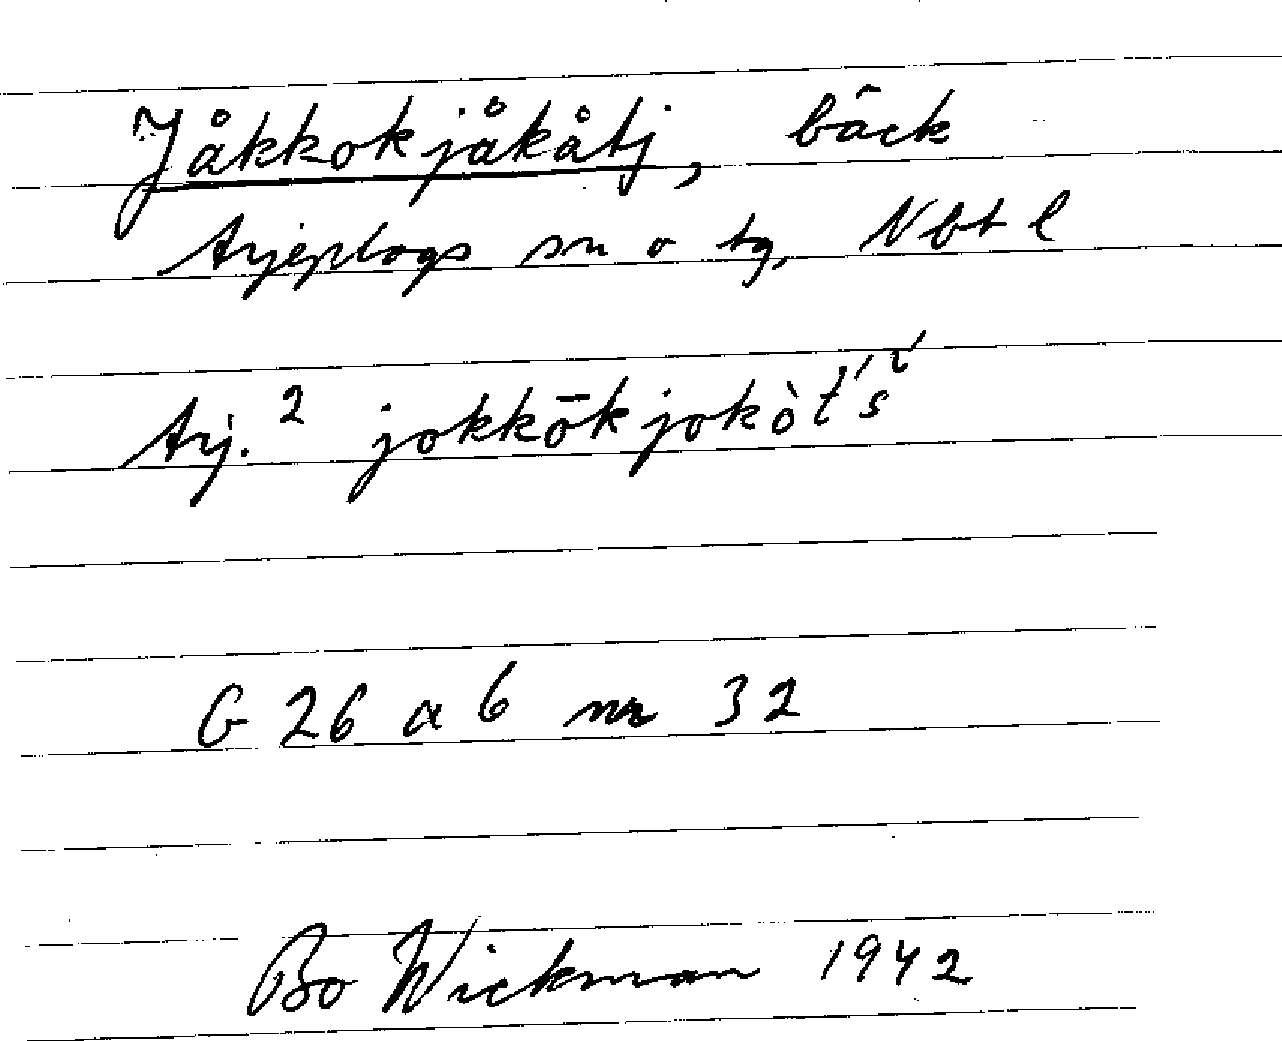 Jåkkokjåkåtj, bäck
Arjeplogs sn o tg, Nbt l
Arj.² jokkō̬kjokò̬t́'š́
G 26 a 6 nr 32
Bo Wickman 1942